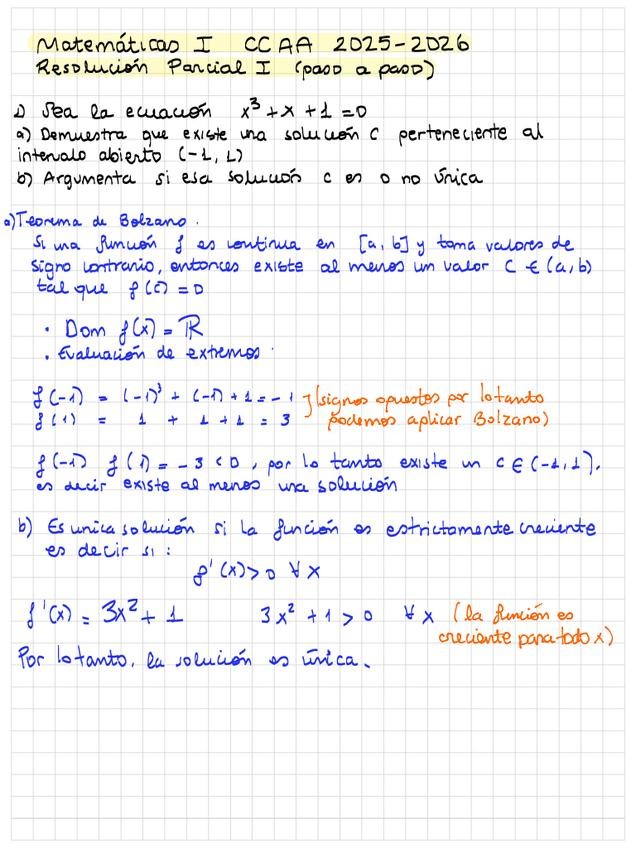 Matemáticas I CCAA 2025-2026
Resolución Parcial I (paso a paso)
1) Sea la ecuación x³ + x + 1 = 0
a) Demuestra que existe una solución c perteneciente al
intervalo abierto (-1, 1)
b) Argumenta si esa solución c es o no única
a) Teorema de Bolzano.
Si una función f es continua en [a, b] y toma valores de
signo contrario, entonces existe al menos un valor C ∈ (a, b)
tal que f(c) = 0
• Dom f(x) = ℝ
• Evaluación de extremos.
f(-1) = (-1)³ + (-1) + 1 = -1 } (signos opuestos por lo tanto
f(1) = 1 + 1 + 1 = 3 podemos aplicar Bolzano)
f(-1) f(1) = -3 < 0, por lo tanto existe un c ∈ (-1, 1),
es decir existe al menos una solución
b) Es unica solución si la función es estrictamente creciente
es decir si:
f'(x) > 0 ∀ x
f'(x) = 3x² + 1 3x² + 1 > 0 ∀ x (la función es
creciente para todo x)
Por lo tanto, la solución es única.